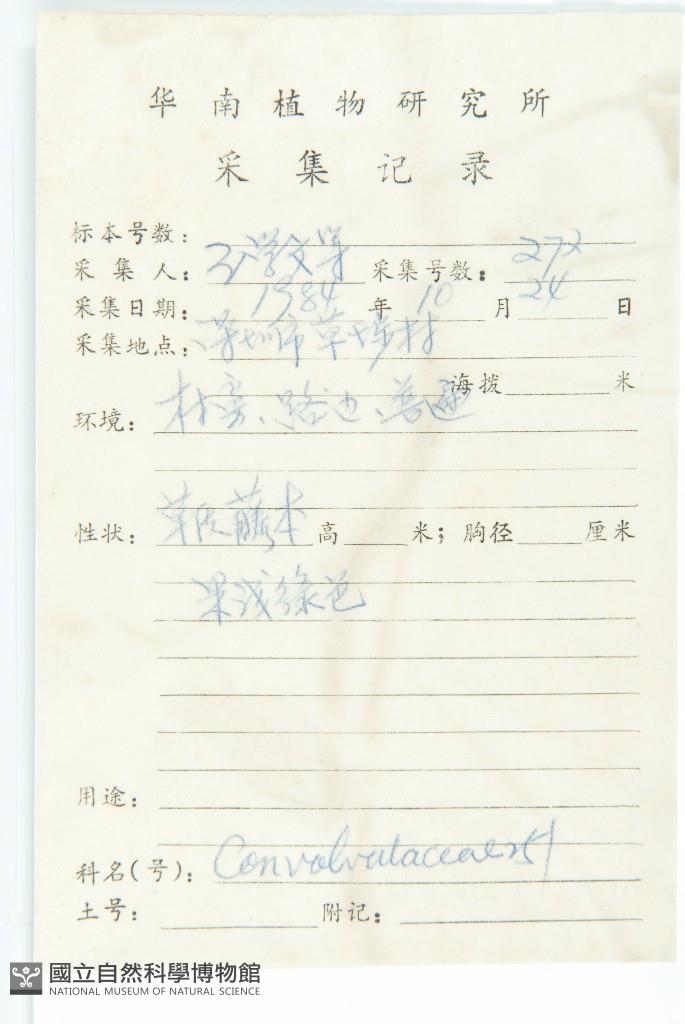 华南植物研究所
采集记录
标本号数：
采集人： 孙学文等 采集号数： 272
采集日期： 1984 年 10 月 24 日
采集地点： 深圳市草埔村
海拨 米
环境： 村旁、路边、普遍
性状： 草质藤本 高 米；胸径 厘米
果浅绿色
用途：
科名(号)： Convolvulaceae 251
土号： 附记：
國立自然科學博物館
NATIONAL MUSEUM OF NATURAL SCIENCE